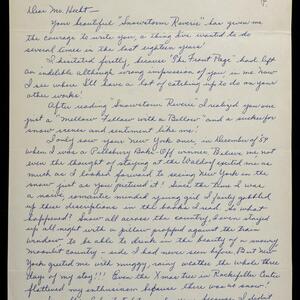 Dear Mr. Hecht -
Your beautiful "Snowstorm Reverie" has given me
the courage to write you, a thing I've wanted to do
several times in the last eighteen years!
I hesitated partly, because "The Front Page" had left
an indelible although wrong impression of you in me. Now
I see where I'll have a lot of catching up to do on your
other works.
After reading "Snowstorm Reverie" I realized you're
just a "Mellow Fellow with a Bellow" and a sucker for
snow scenes and sentiment like me!
I only saw your New York once, in December of '54
when I was a Pillsbury Bake-Off winner. Believe me not
even the thought of staying at the Waldorf excited me as
much as I looked forward to seeing New York in the
snow just as you pictured it! Since the time I was a
naive, romantic minded young girl I fairly gobbled
up these descriptions in the books I read. So what
happened? Snow all across the country, I even stayed
up all night with a pillow propped against the train
window to be able to drink in the beauty of a snowy
moonlit country - and I had never seen before. But New
York greeted me with muggy, rainy weather the whole three
days of my stay!!! Even the Xmas tree in Rockefeller Center
flattened my enthusiasm because there was no snow!